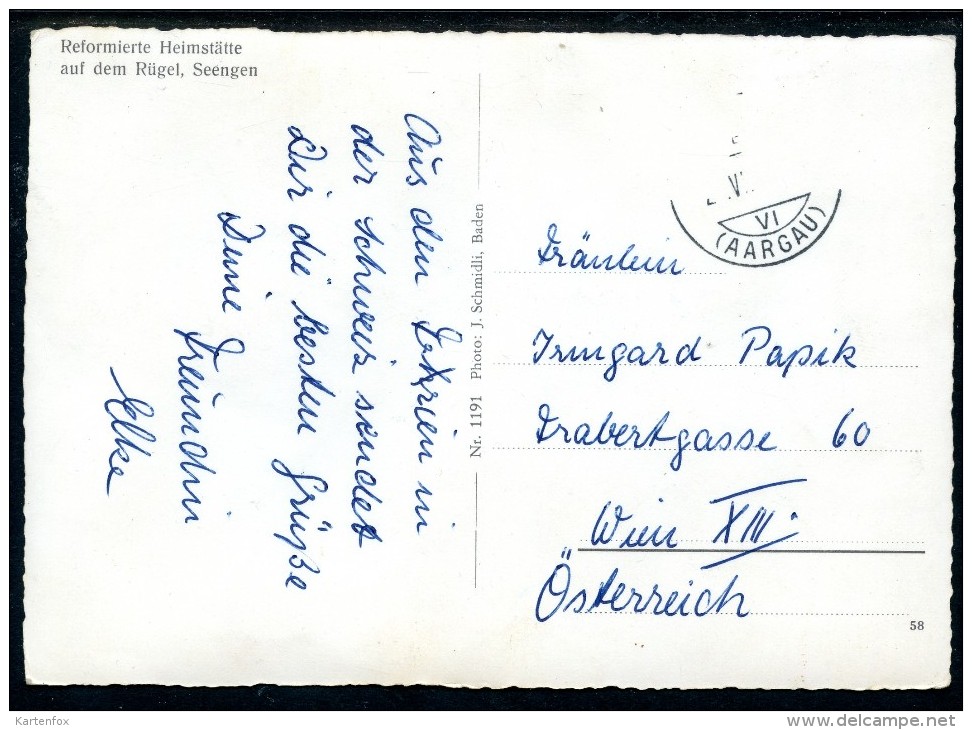 Reformierte Heimstätte
auf dem Rügel, Seengen
Aus den Ferien in
der Schweiz sendet
Dir die besten Grüße
Deine Freundin
Elke
Nr. 1191 Photo: J. Schmidli, Baden
VI
(AARGAU)
Fräulein
Irmgard Papik
Trabertgasse 60
Wien XIII.
Österreich
58
Kartenfox
www.delcampe.net